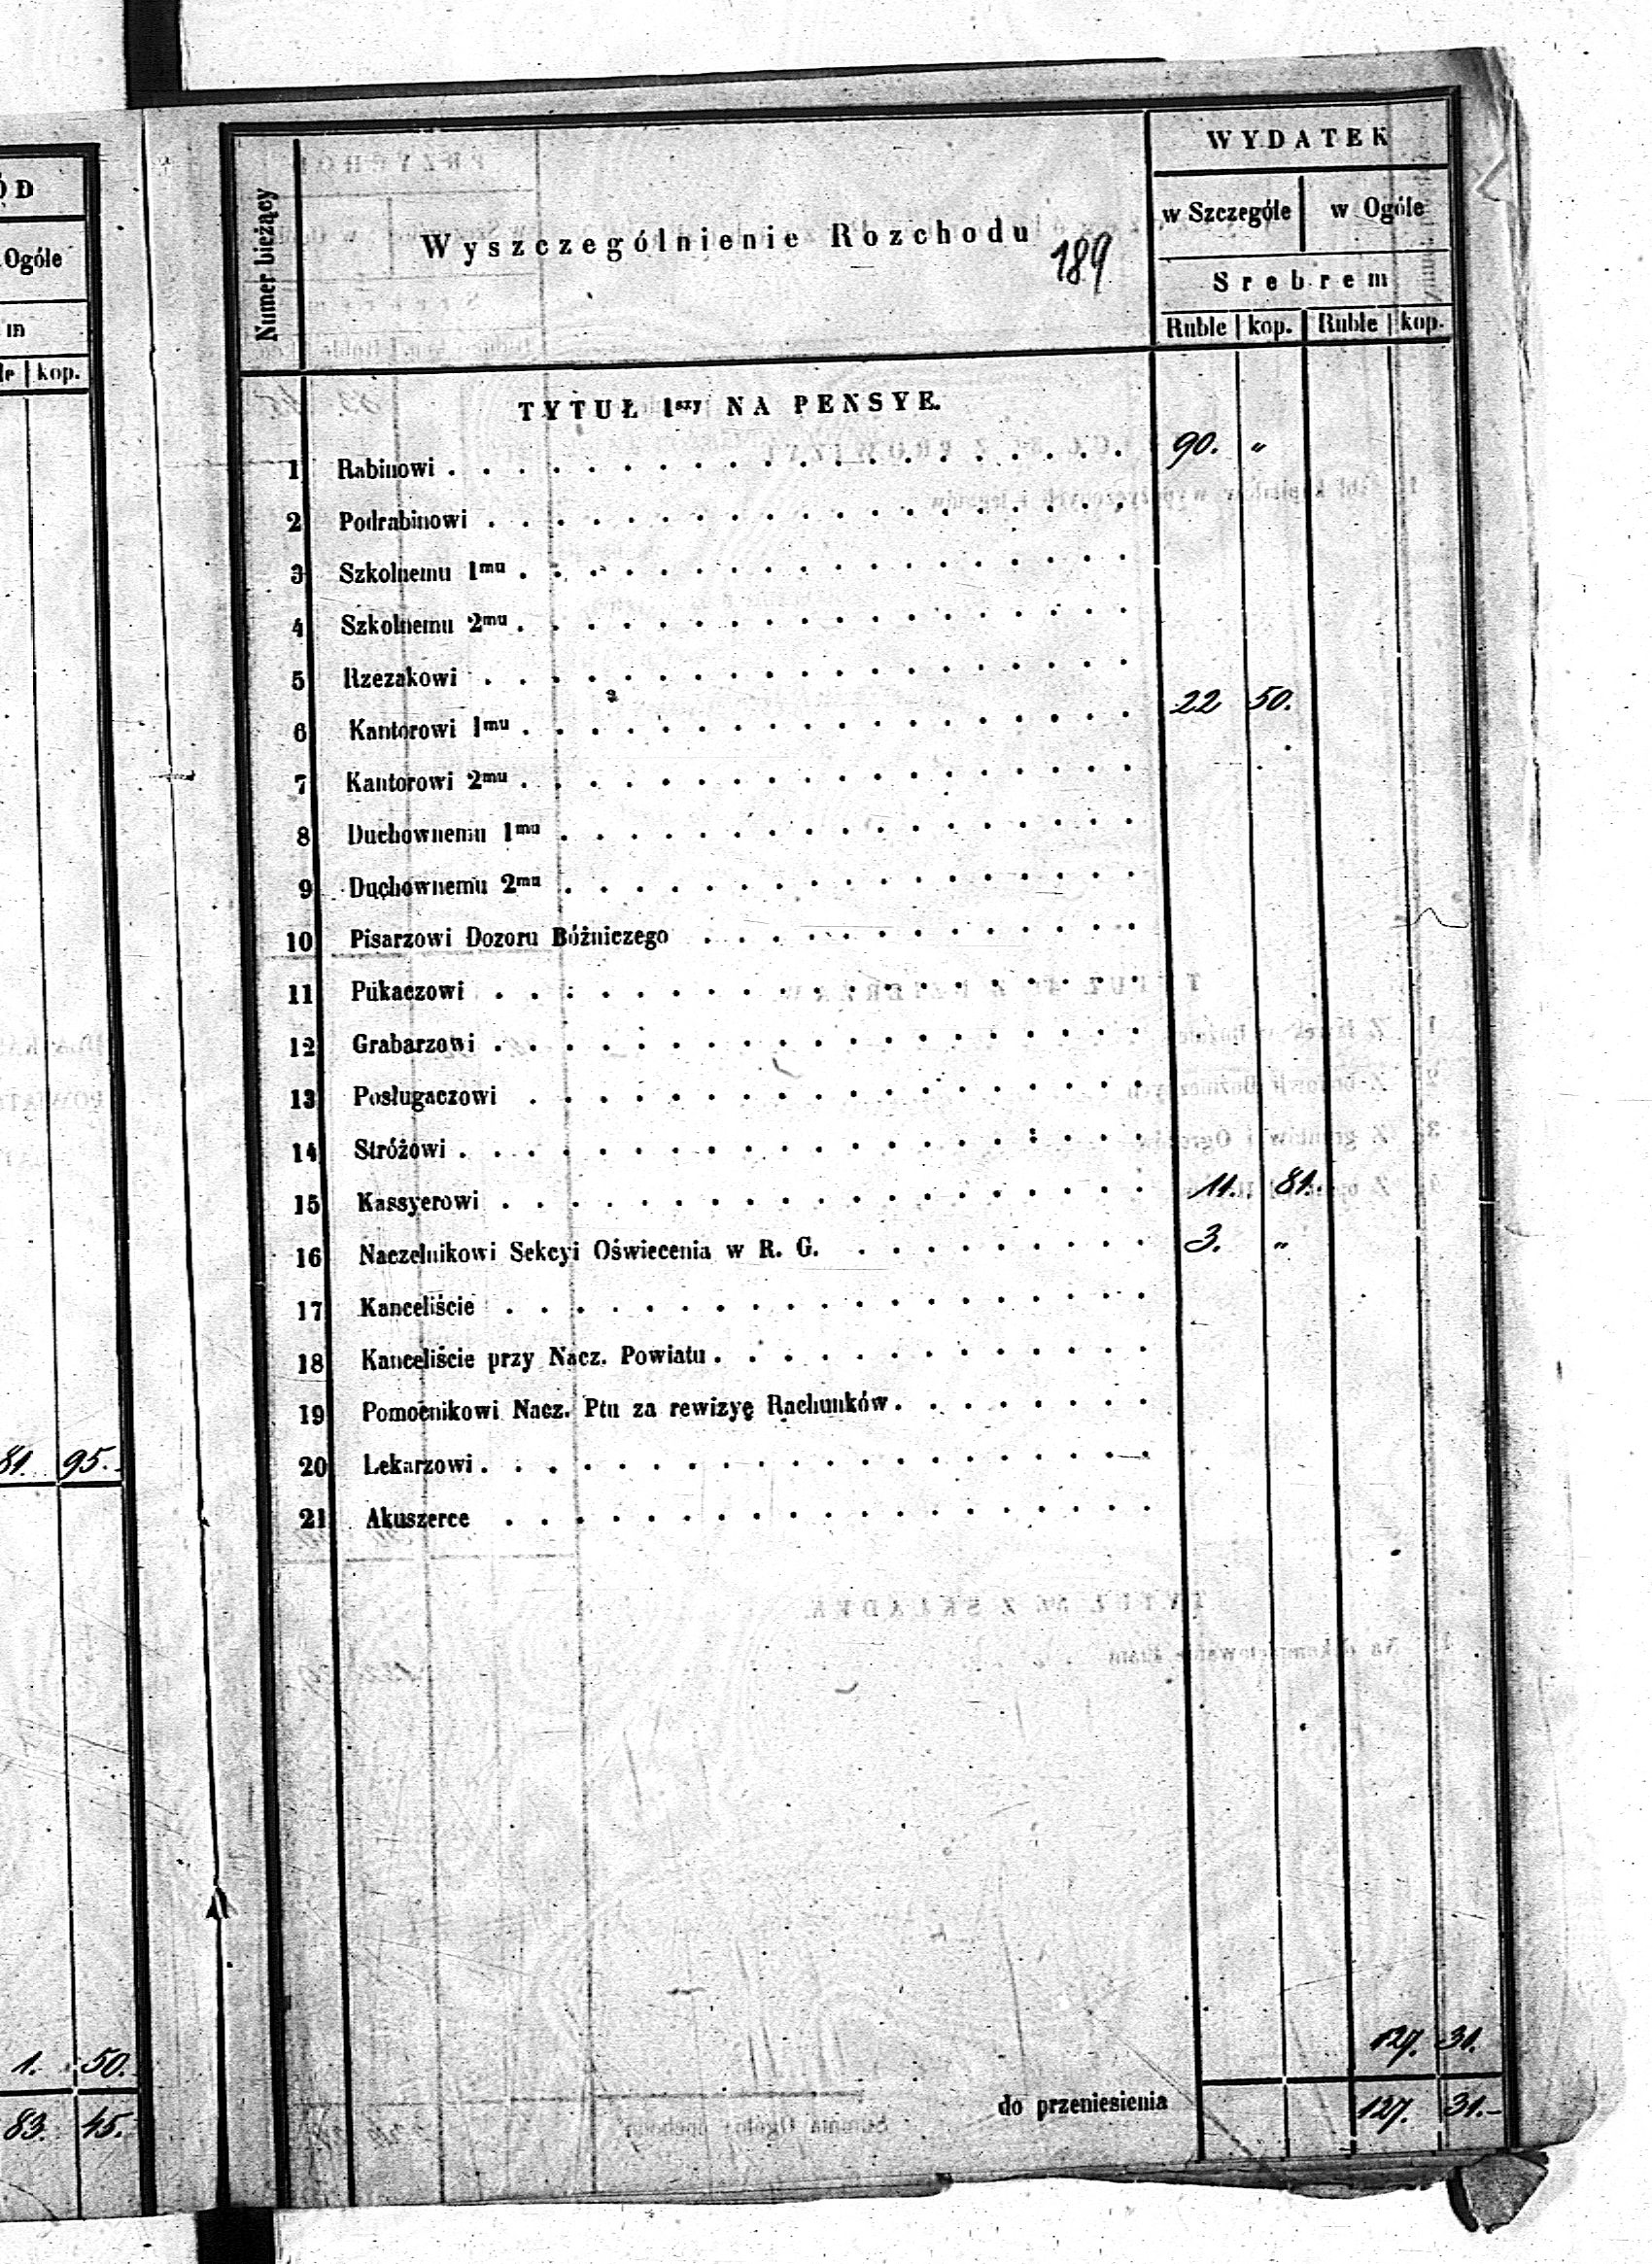 ÓD
Ogóle
m
le kop.
81. 95.
1. 50.
83. 45.
WYDATEK
Numer bieżący
Wyszczególnienie Rozchodu
189
w Szczególe w Ogóle
Srebrem
Ruble kop. Ruble kop.
TYTUŁ 1szy NA PENSYE.
1 Rabinowi . . . 90. „
2 Podrabinowi . . .
3 Szkolnemu 1mu . . .
4 Szkolnemu 2mu . . .
5 Rzezakowi . . .
6 Kantorowi 1mu . . . 22 50.
7 Kantorowi 2mu . . .
8 Duchownemu 1mu . . .
9 Duchownemu 2mu . . .
10 Pisarzowi Dozoru Bóżniczego . . .
11 Pukaczowi . . .
12 Grabarzowi . . .
13 Posługaczowi . . .
14 Stróżowi . . .
15 Kassyerowi . . . 11. 81.
16 Naczelnikowi Sekcyi Oświecenia w R. G. . . . 3. „
17 Kanceliście . . .
18 Kanceliście przy Nacz. Powiatu . . .
19 Pomocnikowi Nacz. Ptu za rewizyę Rachunków . . .
20 Lekarzowi . . .
21 Akuszerce . . .
127. 31.
do przeniesienia 127. 31.